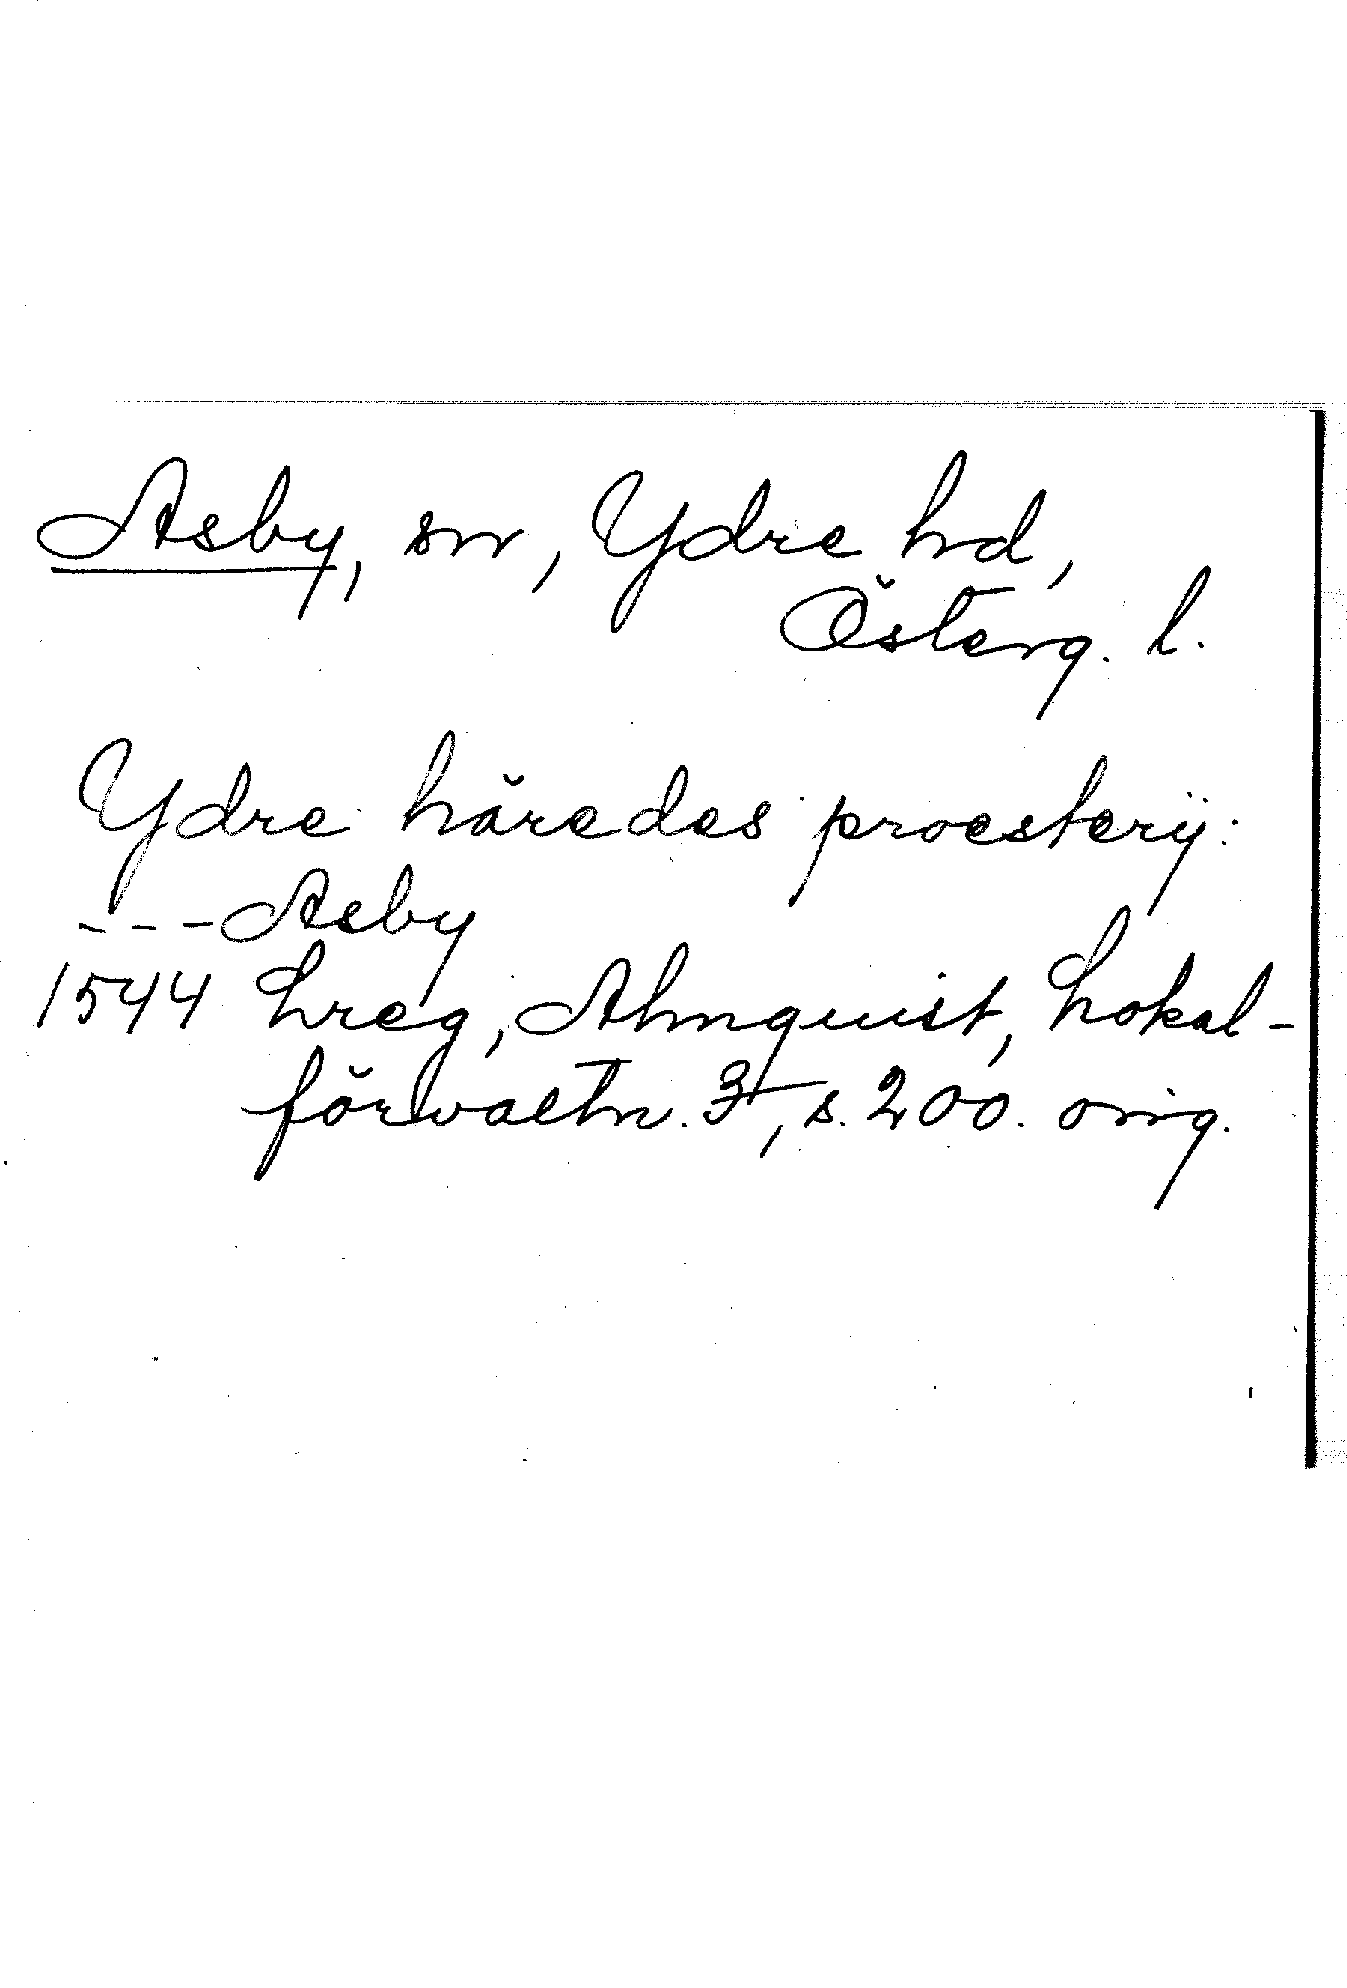 Asby, sn, Ydre hd,
Österg. l.
Ydre häredes proesterij:
--- Asby
1544 Lreg, Almquist, Lokal-
förvaltn. 3, s. 200. orig.